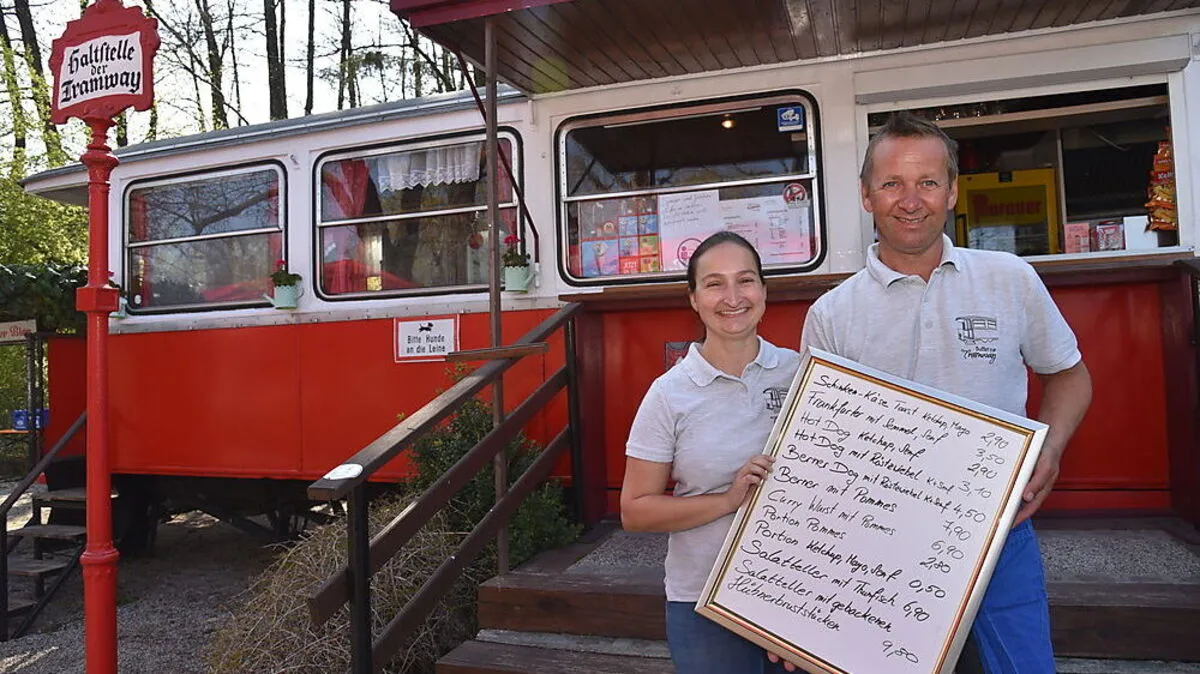 Haltstelle
der
Tramway
Bitte Hunde
an die Leine
Murauer
Buffet zur
Tramway
Schinken-Käse Toast Ketchup, Mayo 2,90
Frankfurter mit Semmel, Senf 3,50
Hot Dog Ketchup, Senf 2,90
Hot Dog mit Röstzwiebel K+Senf 3,10
Berner Dog mit Röstzwiebel K+Senf 4,50
Berner mit Pommes 7,90
Curry Wurst mit Pommes 6,90
Portion Pommes 2,80
Portion Ketchup, Mayo, Senf 0,50
Salatteller mit Thunfisch 6,90
Salatteller mit gebackenen
Hühnerbruststücken 9,80